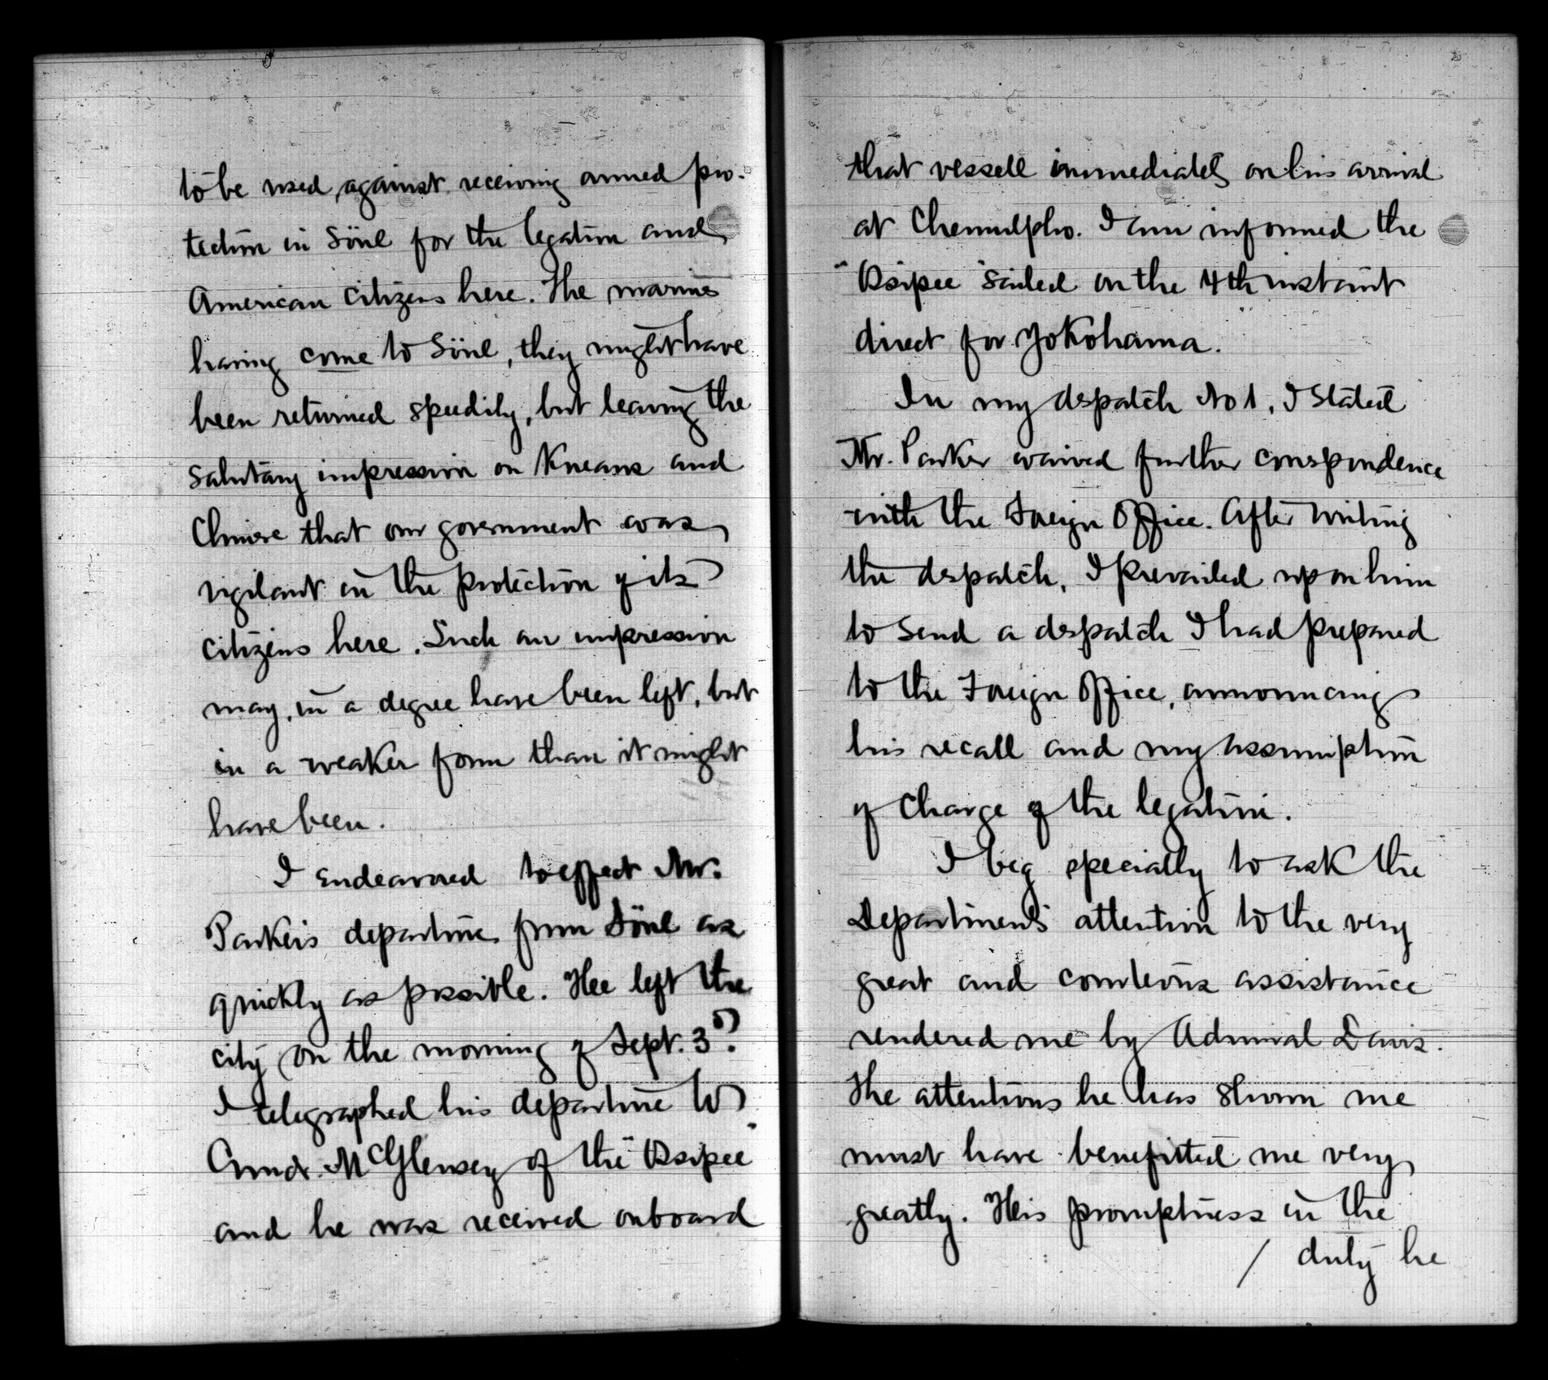 to be used, against receiving armed pro-
tection in Söul for the legation and
American citizens here. The marines
having come to Söul, they might have
been returned speedily, but leaving the
salutary impression on Koreans and
Chinese that our government was
vigilant in the protection of its
citizens here. Such an impression
may, in a degree have been left, but
in a weaker form than it might
have been.
I endeavored to effect Mr.
Parker's departure from Söul as
quickly as possible. Hee left the
city on the morning of Sept. 3d.
I telegraphed his departure to
Cmdr. McGlensey of the "Ossipee"
and he was received onboard
that vessell immediately on his arrival
at Chemulpho. I am informed the
"Ossipee" sailed on the 4th instant
direct for Yokohama.
In my despatch No 1, I stated
Mr. Parker waived further correspondence
with the Foreign Office. After writing
the despatch, I prevailed upon him
to send a despatch I had prepared
to the Foreign Office, announcing
his recall and my assumption
of charge of the legation.
I beg specially to ask the
Department's attention to the very
great and courteous assistance
rendered me by Admiral Davis.
The attentions he has shown me
must have benefitted me very
greatly. His promptness in the
/ duty he